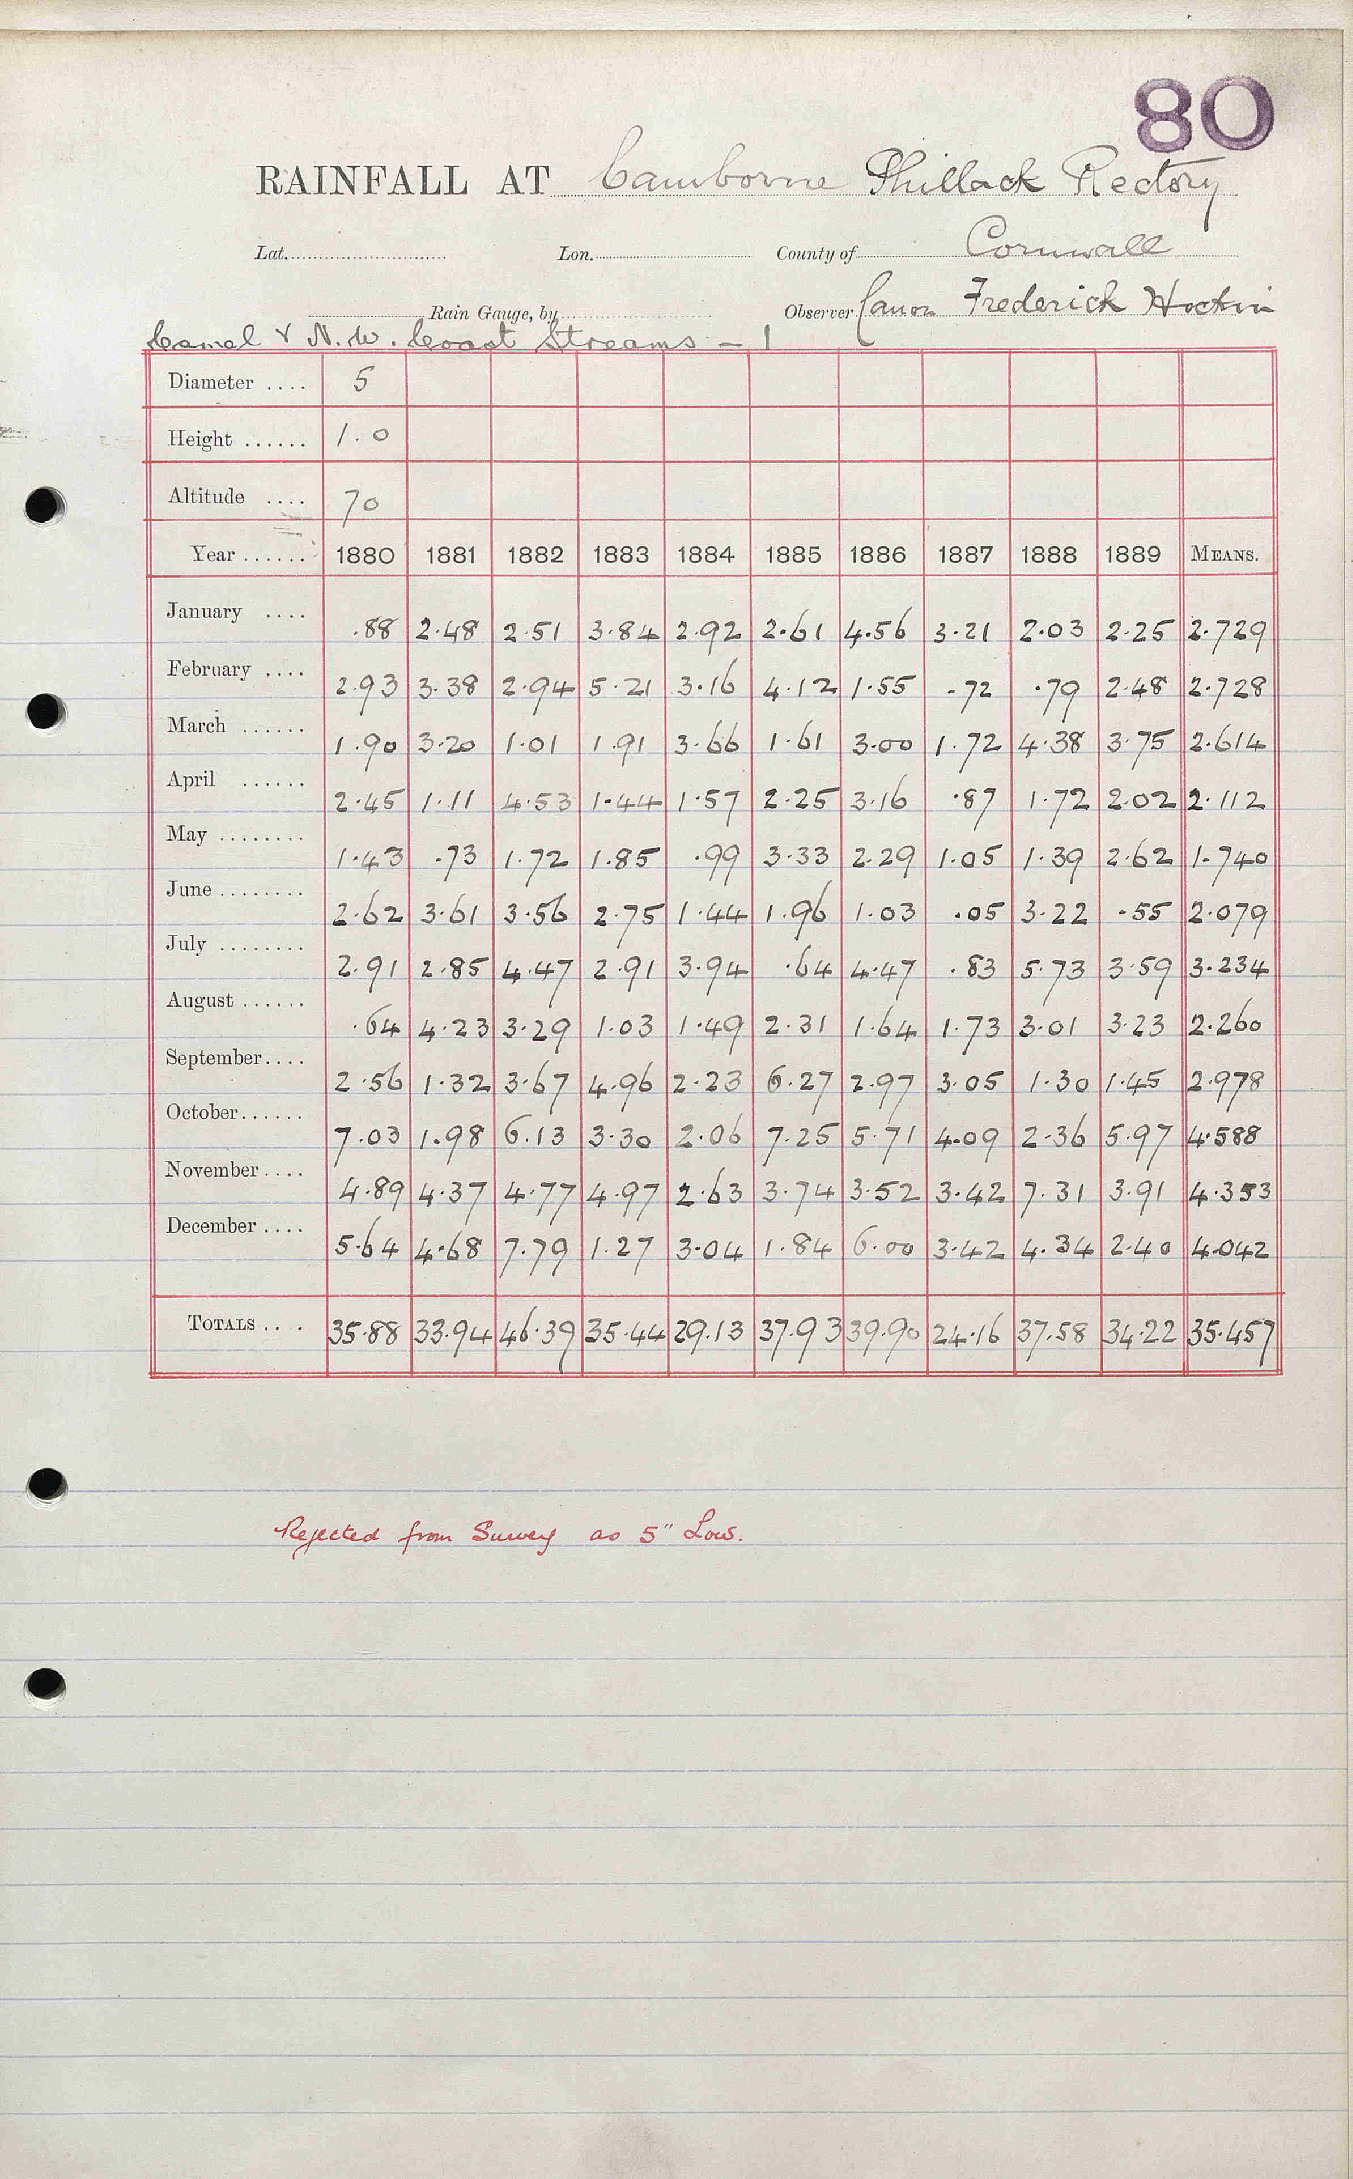 80
RAINFALL AT Camborne Phillack Rectory
Lat. Lon. County of Cornwall
Rain Gauge, by Observer Canon Frederick Hockin
Camel & N.W. Coast Streams - 1
Diameter .... 5
Height ...... 1.0
Altitude .... 70
Year ...... 1880 1881 1882 1883 1884 1885 1886 1887 1888 1889 MEANS.
January .... .88 2.48 2.51 3.84 2.92 2.61 4.56 3.21 2.03 2.25 2.729
February .... 2.93 3.38 2.94 5.21 3.16 4.12 1.55 .72 .79 2.48 2.728
March ...... 1.90 3.20 1.01 1.91 3.66 1.61 3.00 1.72 4.38 3.75 2.614
April ...... 2.45 1.11 4.53 1.44 1.57 2.25 3.16 .87 1.72 2.02 2.112
May ........ 1.43 .73 1.72 1.85 .99 3.33 2.29 1.05 1.39 2.62 1.740
June ........ 2.62 3.61 3.56 2.75 1.44 1.96 1.03 .05 3.22 .55 2.079
July ........ 2.91 2.85 4.47 2.91 3.94 .64 4.47 .83 5.73 3.59 3.234
August ...... .64 4.23 3.29 1.03 1.49 2.31 1.64 1.73 3.01 3.23 2.260
September .... 2.56 1.32 3.67 4.96 2.23 6.27 2.97 3.05 1.30 1.45 2.978
October ...... 7.03 1.98 6.13 3.30 2.06 7.25 5.71 4.09 2.36 5.97 4.588
November .... 4.89 4.37 4.77 4.97 2.63 3.74 3.52 3.42 7.31 3.91 4.353
December .... 5.64 4.68 7.79 1.27 3.04 1.84 6.00 3.42 4.34 2.40 4.042
TOTALS .... 35.88 33.94 46.39 35.44 29.13 37.93 39.90 24.16 37.58 34.22 35.457
Rejected from Survey as 5" Low.